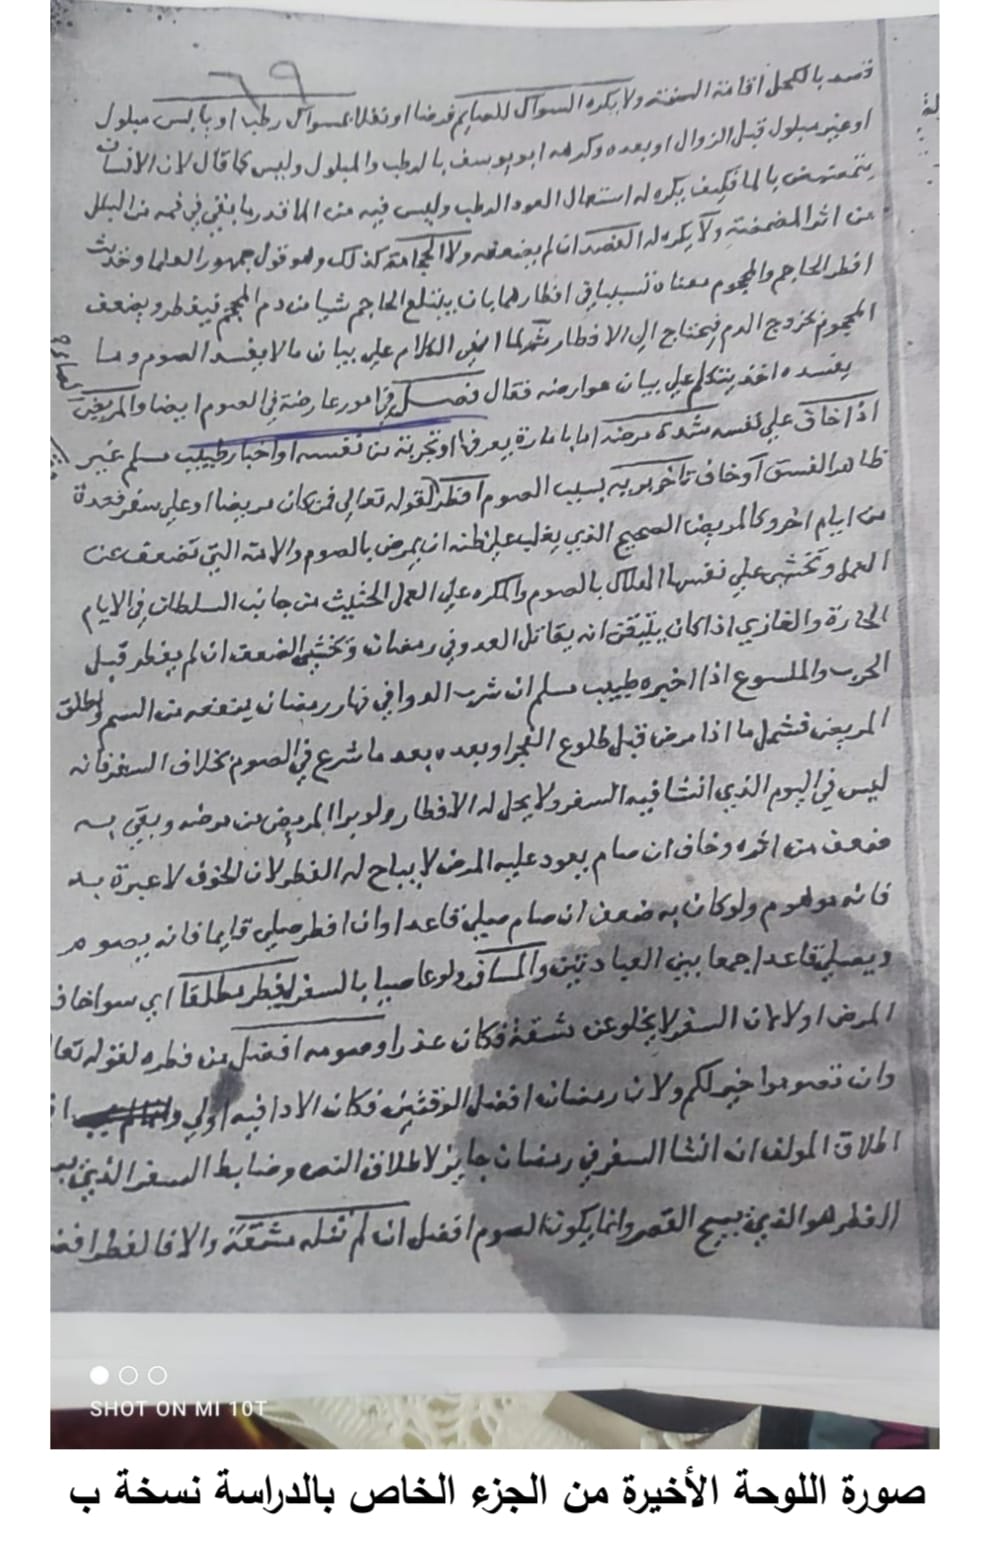 ٦٩
قصد بالكحل اقامة السنة ولا يكره السواك للصايم فرضا او نفلا بمسواك رطب او يابس مبلول
او غير مبلول قبل الزوال او بعده وكرهه ابو يوسف بالرطب والمبلول وليس كما قال لان الانسان
يتمضمض بالما فكيف يكره له استعمال العود الرطب وليس فيه من الما قدر ما يبقي في فمه من البلل
من اثر المضمضة ولا يكره له الفصد ان لم يضعفه ولا الحجامة كذلك وهو قول جمهور العلما وحديث
افطر الحاجم والمحجوم معناه تسببا في افطارهما بان يبتلع الحاجم شيا من دم المحجم فيفطر ويضعف
المحجوم بخروج الدم فيحتاج الي الافطار ثم لما انهي الكلام علي بيان مالا يفسد الصوم وما
يفسده اخذ يتكلم علي بيان عوارضه فقال فصل في امور عارضة في الصوم ايضا والمريض
اذا خاف علي نفسه شدة مرضه اما بامارة يعرفها او تجربة من نفسه او اخبار طبيب مسلم غير
ظاهر الفسق او خاف تاخر بريه بسبب الصوم افطر لقوله تعالي فمن كان مريضا او علي سفر فعدة
من ايام اخر وكالمريض الصحيح الذي يغلب علي ظنه ان يمرض بالصوم والامة التي تضعف عن
العمل وتخشي علي نفسها الهلاك بالصوم والمكره علي العمل الحثيث من جانب السلطان في الايام
الحارة والغازي اذا كان يتيقن انه يقاتل العدو في رمضان وتخشي الضعف ان لم يفطر قبل
الحرب والملسوع اذا اخبره طبيب مسلم ان شرب الدوا في نهار رمضان ينفعه من السم واطلق
المريض فشمل ما اذا مرض قبل طلوع الفجر او بعده بعد ما شرع في الصوم بخلاف السفر فانه
ليس في اليوم الذي انشا فيه السفر ولا يحل له الافطار ولو برا المريض من مرضه وبقي به
ضعف من اثره وخاف ان صام يعود عليه المرض لا يباح له الفطر لان الخوف لا عبرة به
فانه موهوم ولو كان به ضعف ان صام صلي قاعدا وان افطر صلي قايما فانه يصوم
ويصلي قاعدا جمعا بين العبادتين والمسافر ولو عاصيا بالسفر يفطر مطلقا اي سوا خاف
المرض اولا لان السفر لا يخلو عن مشقة فكان عذرا وصومه افضل من فطره لقوله تعا
وان تصوموا خير لكم ولان رمضان افضل الوقتين فكان الادا فيه اولي
اطلاق المولف انه انشا السفر في رمضان جايز لاطلاق النص وضابط السفر الذي
الفطر هو الذي يبيح القصر وانما يكون الصوم افضل ان لم تنله مشقة والا فالفطر افض
SHOT ON MI 10T
صورة اللوحة الأخيرة من الجزء الخاص بالدراسة نسخة ب